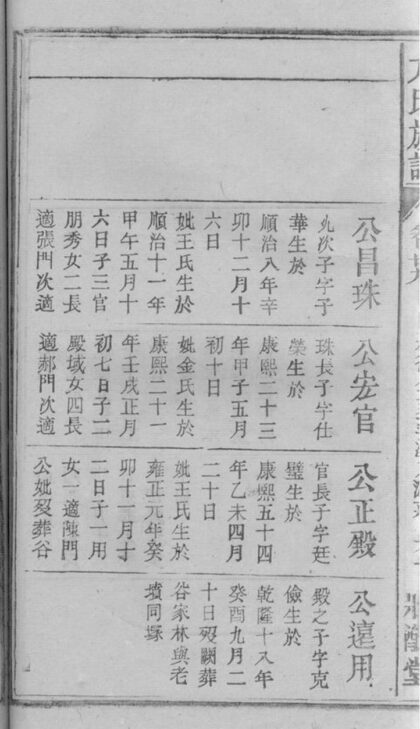 氏族譜
堂
公昌珠
允次子字子
華生於
順治八年辛
卯十二月十
六日
妣王氏生於
順治十一年
甲午五月十
六日子三官
朋秀女二長
適張門次適
公宏官
珠長子字仕
榮生於
康熙二十三
年甲子五月
初十日
妣金氏生於
康熙二十一
年壬戌正月
初七日子二
殿域女四長
適郝門次適
公正殿
官長子字廷
璧生於
康熙五十四
年乙未四月
二十日
妣王氏生於
雍正元年癸
卯十一月十
二日子一用
女一適陳門
公妣歿葬谷
公遠用
殿之子字克
儉生於
乾隆十八年
癸酉九月二
十日歿闕葬
谷家林與老
墳同塚